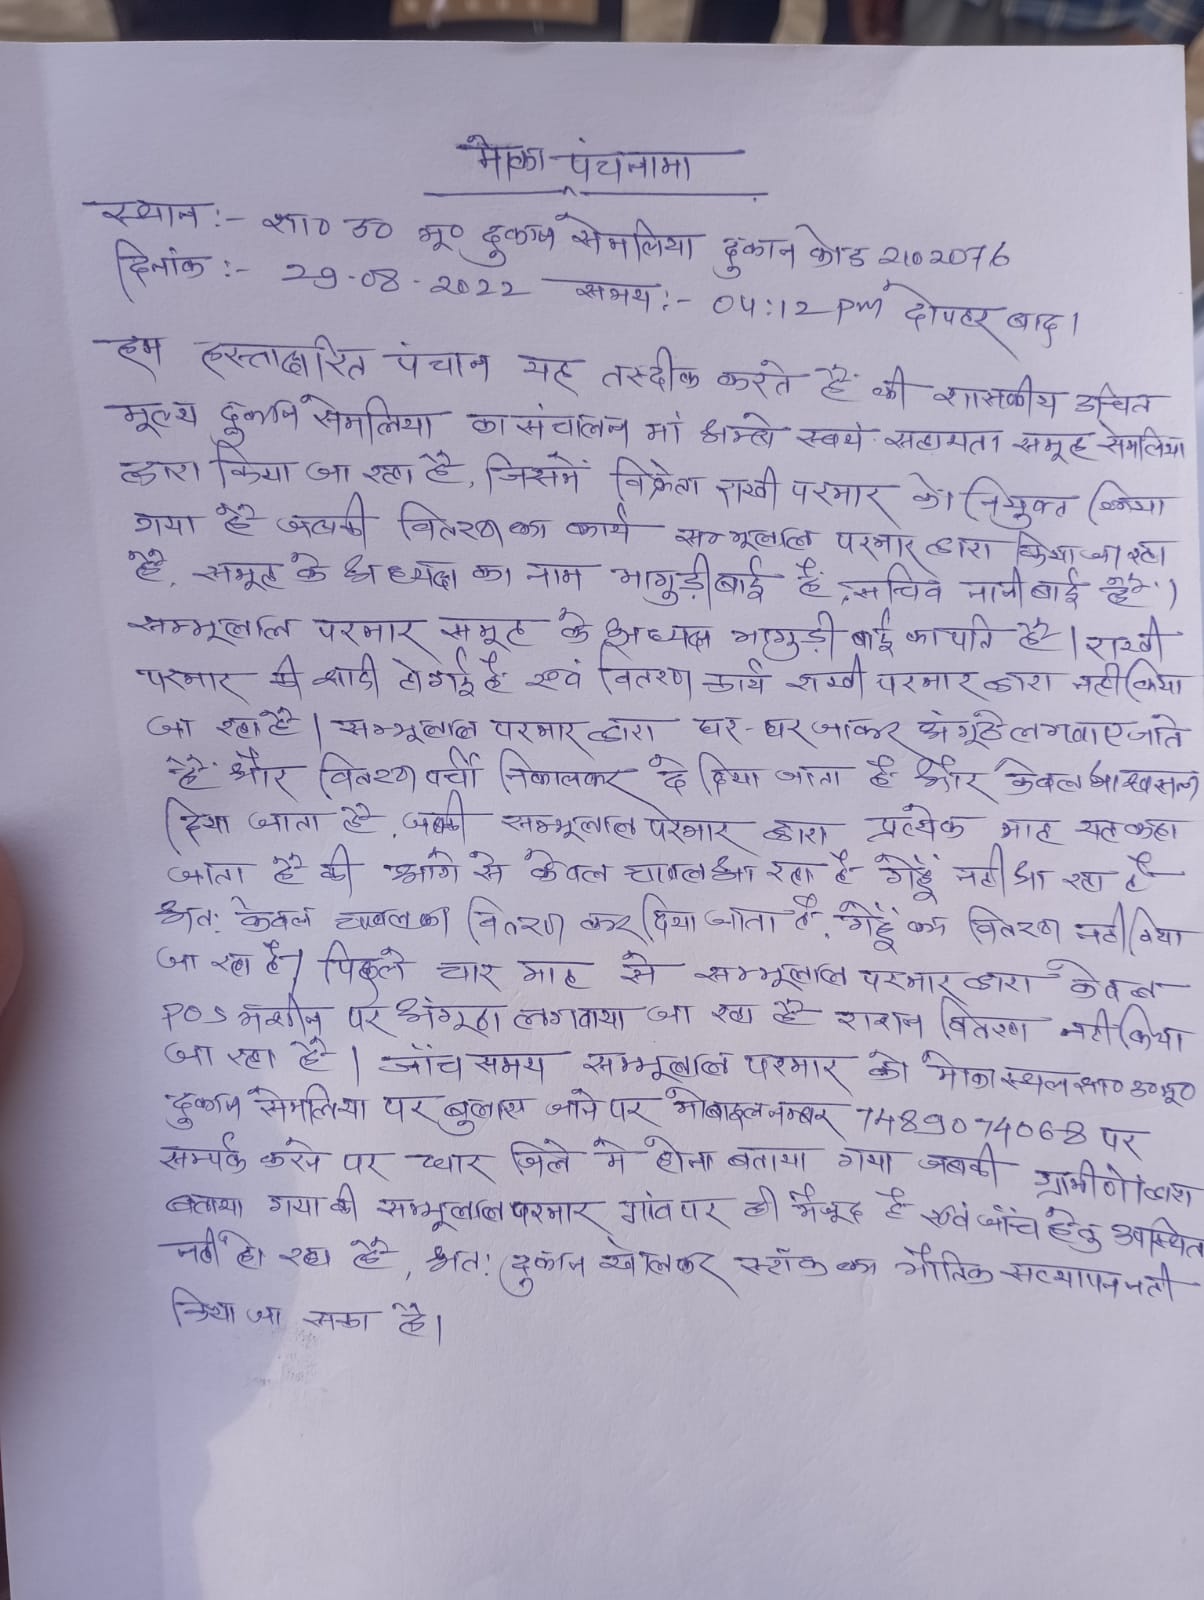 मौका पंचनामा
स्थान:- शा० उ० मू० दुकान सेमलिया दुकान कोड 2102076
दिनांक:- 29-08-2022 समय:- 04:12 PM दोपहर बाद।
हम हस्ताक्षरित पंचान यह तस्दीक करते है की शासकीय उचित
मूल्य दुकान सेमलिया का संचालन मां अम्बे स्वयं सहायता समूह सेमलिया
द्वारा किया जा रहा है, जिसमें विक्रेता राखी परमार को नियुक्त किया
गया है जबकी वितरण का कार्य सम्भूलाल परमार द्वारा किया जा रहा
है, समूह के अध्यक्ष का नाम भागुड़ी बाई है, सचिव नानी बाई है।
सम्भूलाल परमार समूह के अध्यक्ष भागुड़ी बाई का पति है। राखी
परमार की शादी हो गई है एवं वितरण कार्य राखी परमार द्वारा नही किया
जा रहा है। सम्भूलाल परमार द्वारा घर-घर जाकर अंगूठे लगवाए जाते
है और वितरण पर्ची निकालकर दे दिया जाता है और केवल आश्वासन
दिया जाता है, जबकी सम्भूलाल परमार द्वारा प्रत्येक माह यह कहा
जाता है की आगे से केवल चावल आ रहा है गेहूं नही आ रहा है
अत: केवल चावल का वितरण कर दिया जाता है, गेहूं का वितरण नही किया
जा रहा है। पिछले चार माह से सम्भूलाल परमार द्वारा केवल
POS मशीन पर अंगूठा लगवाया जा रहा है राशन वितरण नही किया
जा रहा है। जाँच समय सम्भूलाल परमार को मौका स्थल शा० उ० मू०
दुकान सेमलिया पर बुलाए जाने पर मोबाइल नम्बर 7489074068 पर
सम्पर्क करने पर धार जिले मे होना बताया गया जबकी ग्रामीणो द्वारा
बताया गया की सम्भूलाल परमार गांव पर ही मौजूद है एवं जाँच हेतु उपस्थित
नही हो रहा है, अत: दुकान खोलकर स्टॉक का भौतिक सत्यापन नही
किया जा सका है।